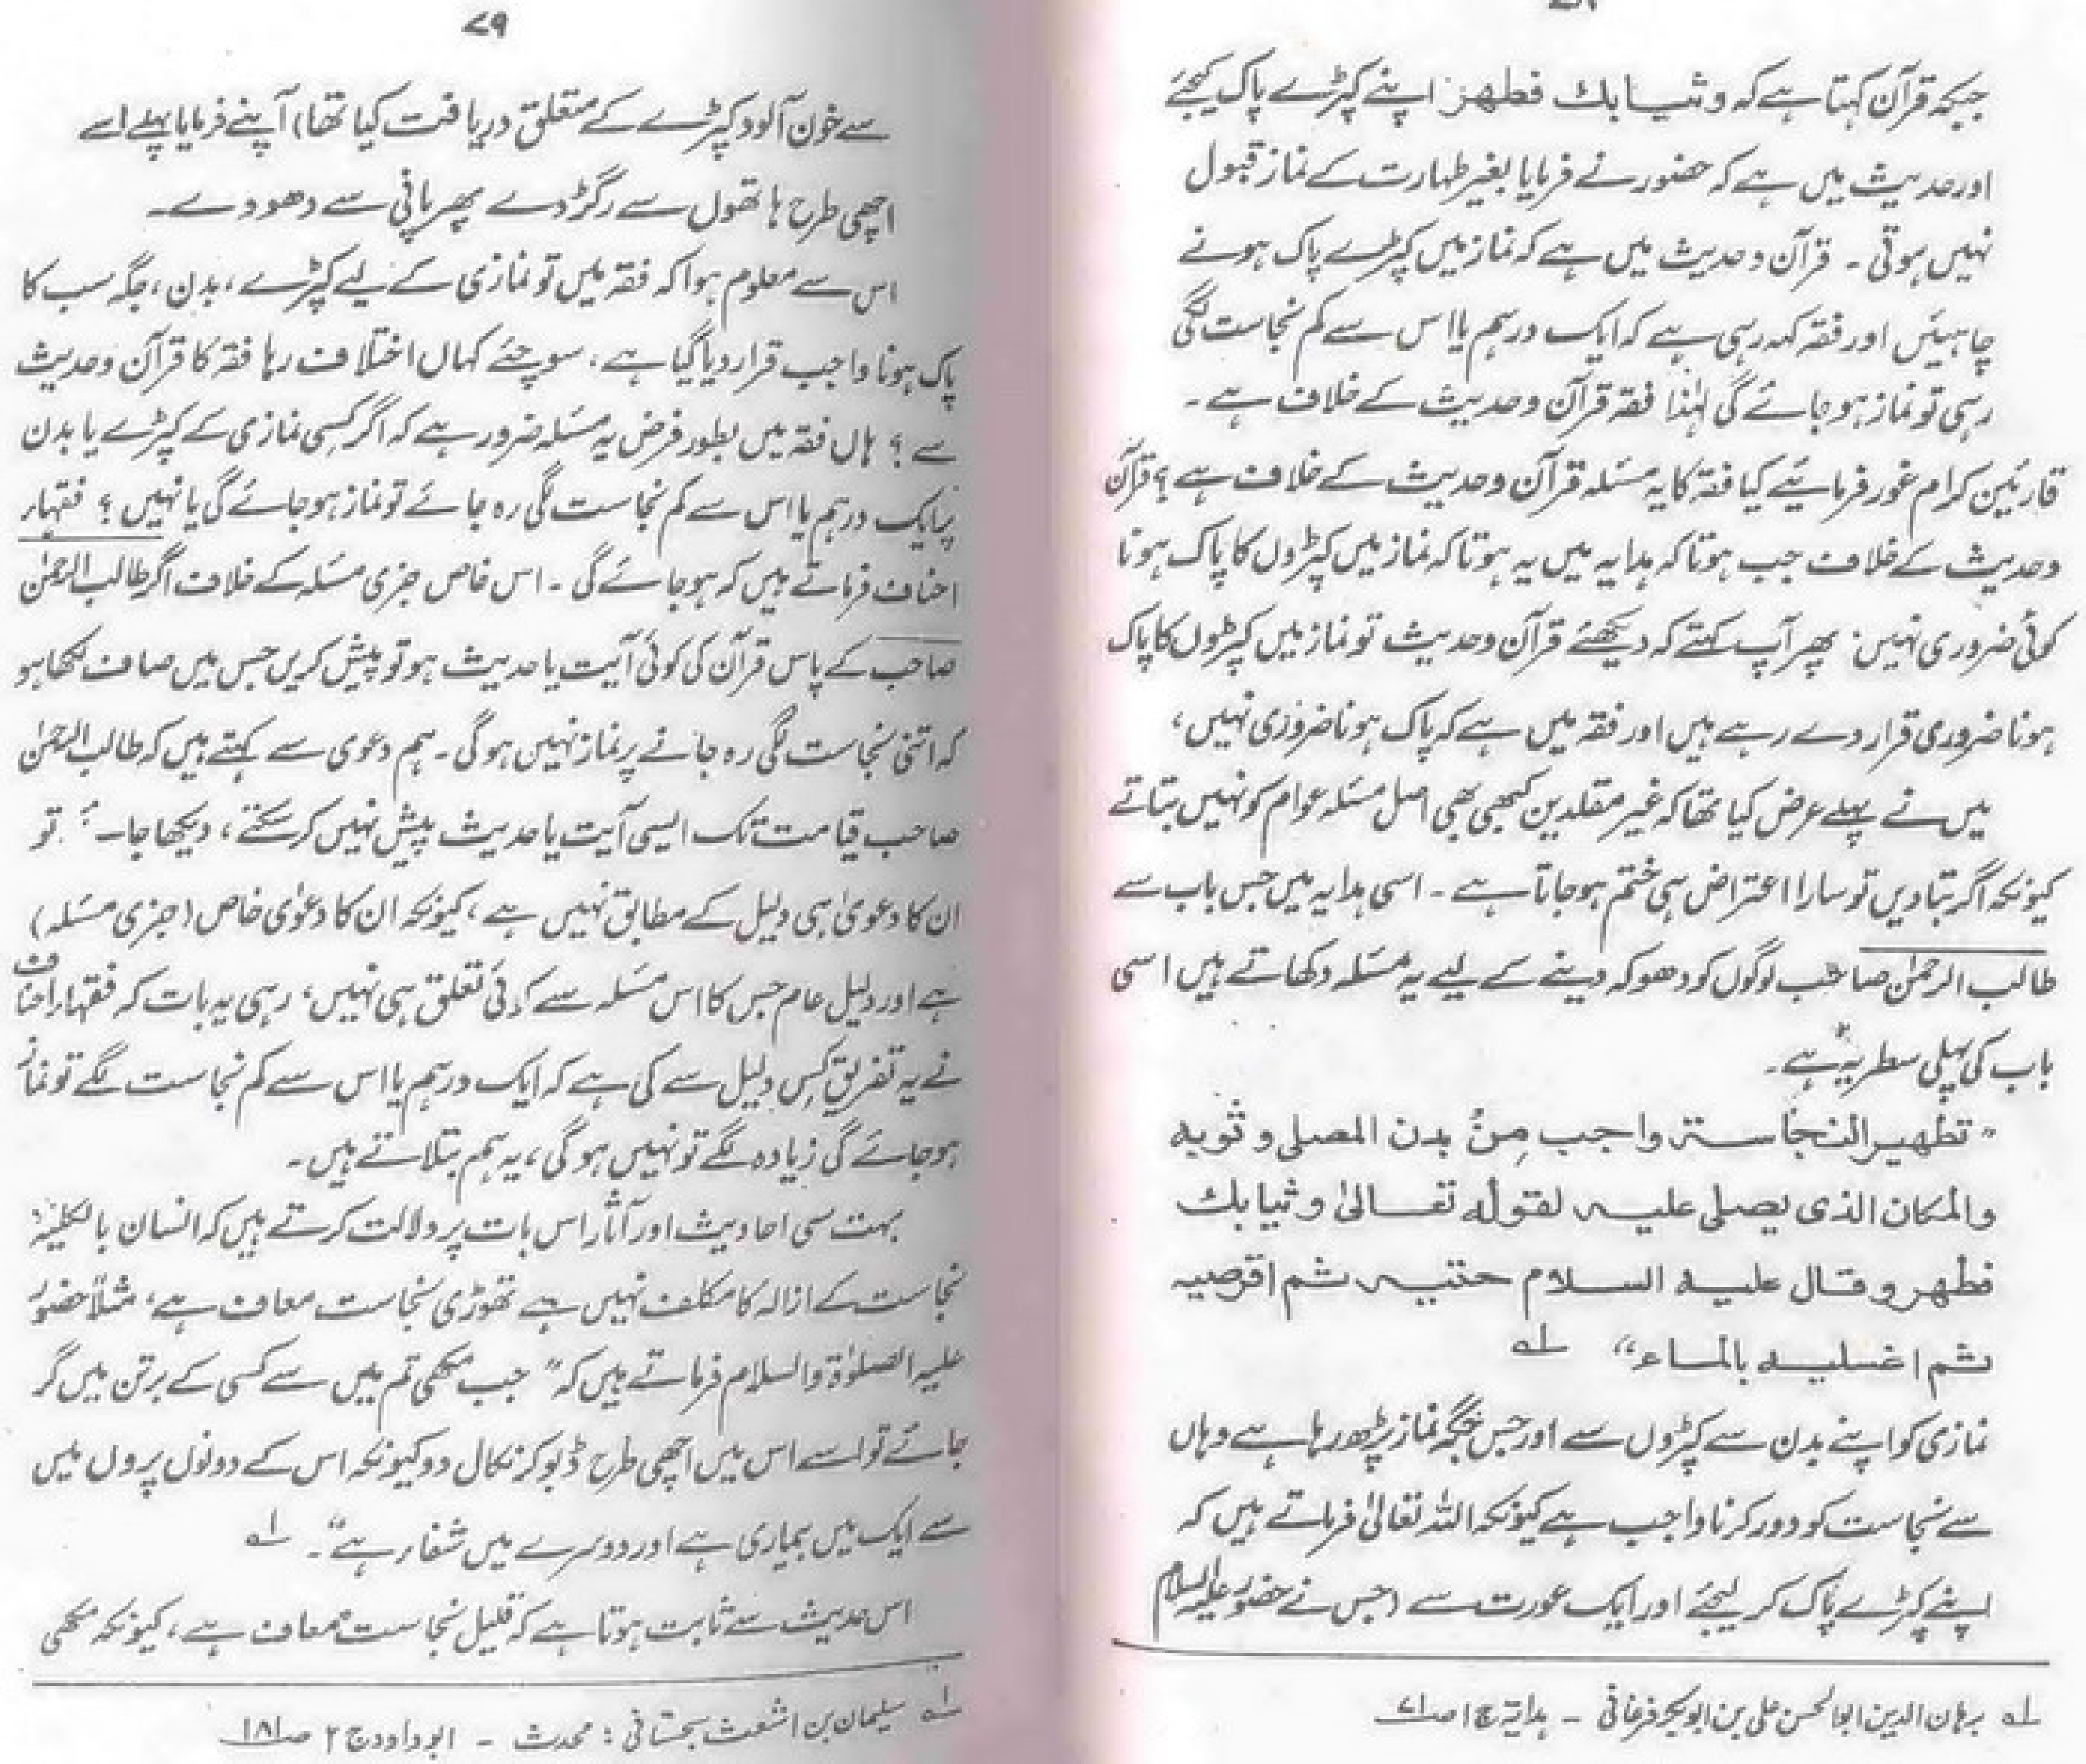 جبکہ قرآن کہتا ہے کہ وثیابك فطهر اپنے کپڑے پاک کیجئے
اور حدیث میں ہے کہ حضور نے فرمایا بغیر طہارت کے نماز قبول
نہیں ہوتی ۔ قرآن و حدیث میں ہے کہ نماز میں کپڑے پاک ہونے
چاہئیں اور فقہ کہہ رہی ہے کہ ایک درہم یا اس سے کم نجاست لگی
رہی تو نماز ہو جائے گی لہٰذا فقہ قرآن و حدیث کے خلاف ہے ۔
قارئین کرام غور فرمائیے کیا فقہ کا یہ مسئلہ قرآن و حدیث کے خلاف ہے ؟ قرآن
و حدیث کے خلاف جب ہوتا کہ ہدایہ میں یہ ہوتا کہ نماز میں کپڑوں کا پاک ہونا
کوئی ضروری نہیں ۔ پھر آپ کہتے کہ دیکھئے قرآن و حدیث تو نماز میں کپڑوں کا پاک
ہونا ضروری قرار دے رہے ہیں اور فقہ میں ہے کہ پاک ہونا ضروری نہیں ،
میں نے پہلے عرض کیا تھا کہ غیر مقلدین کبھی بھی اصل مسئلہ عوام کو نہیں بتاتے
کیونکہ اگر بتا دیں تو سارا اعتراض ہی ختم ہو جاتا ہے ۔ اسی ہدایہ میں جس باب سے
طالب الرحمٰن صاحب لوگوں کو دھوکہ دینے کے لیے یہ مسئلہ دکھاتے ہیں اسی
باب کی پہلی سطر یہ ہے ۔
” تطهير النجاسة واجب من بدن المصلى و ثوبه
والمكان الذى يصلى عليه لقوله تعالىٰ و ثيابك
فطهر و قال عليه السلام حتيه ثم اقرصيه
ثم اغسليه بالماء “ لے
نمازی کو اپنے بدن سے کپڑوں سے اور جس جگہ نماز پڑھ رہا ہے وہاں
سے نجاست کو دور کرنا واجب ہے کیونکہ اللہ تعالیٰ فرماتے ہیں کہ
اپنے کپڑے پاک کر لیجئے اور ایک عورت سے (جس نے حضور علیہ السلام
لے برہان الدین ابوالحسن علی بن ابوبکر فرغانی - ہدایة ج ۱ صـ ۷۱
۷۹
سے خون آلود کپڑے کے متعلق دریافت کیا تھا) آپنے فرمایا پہلے اسے
اچھی طرح ہاتھوں سے رگڑ دے پھر پانی سے دھو دے ۔
اس سے معلوم ہوا کہ فقہ میں تو نمازی کے لیے کپڑے ، بدن ، جگہ سب کا
پاک ہونا واجب قرار دیا گیا ہے ، سوچئے کہاں اختلاف رہا فقہ کا قرآن و حدیث
سے ؟ ہاں فقہ میں بطور فرض یہ مسئلہ ضرور ہے کہ اگر کسی نمازی کے کپڑے یا بدن
پر ایک درہم یا اس سے کم نجاست لگی رہ جائے تو نماز ہو جائے گی یا نہیں ؟ فقہاء
احناف فرماتے ہیں کہ ہو جائے گی ۔ اس خاص جزی مسئلہ کے خلاف اگر طالب الرحمٰن
صاحب کے پاس قرآن کی کوئی آیت یا حدیث ہو تو پیش کریں جس میں صاف لکھا ہو
کہ اتنی نجاست لگی رہ جانے پر نماز نہیں ہوگی ۔ ہم دعوی سے کہتے ہیں کہ طالب الرحمٰن
صاحب قیامت تک ایسی آیت یا حدیث پیش نہیں کر سکتے ، دیکھا جا تو
ان کا دعویٰ ہی دلیل کے مطابق نہیں ہے ، کیونکہ ان کا دعوٰی خاص (جزی مسئلہ)
ہے اور دلیل عام جس کا اس مسئلہ سے کوئی تعلق ہی نہیں ، رہی یہ بات کہ فقہاء احناف
نے یہ تفریق کس دلیل سے کی ہے کہ ایک درہم یا اس سے کم نجاست لگے تو نماز
ہو جائے گی زیادہ لگے تو نہیں ہوگی ، یہ ہم بتلاتے ہیں ۔
بہت سی احادیث اور آثار اس بات پر دلالت کرتے ہیں کہ انسان بالکلیۃ
نجاست کے ازالہ کا مکلف نہیں ہے تھوڑی نجاست معاف ہے ، مثلاً حضور
علیہ الصلوٰۃ والسلام فرماتے ہیں کہ ” جب مکھی تم میں سے کسی کے برتن میں گر
جائے تو اسے اس میں اچھی طرح ڈبو کر نکال دو کیونکہ اس کے دونوں پروں میں
سے ایک میں بیماری ہے اور دوسرے میں شفاء ہے “ ۔ لے
اس حدیث سے ثابت ہوتا ہے کہ قلیل نجاست معاف ہے ، کیونکہ مکھی
لے سلیمان بن اشعث سجستانی : محدث - ابو داود ج ۲ صـ ۱۸۱